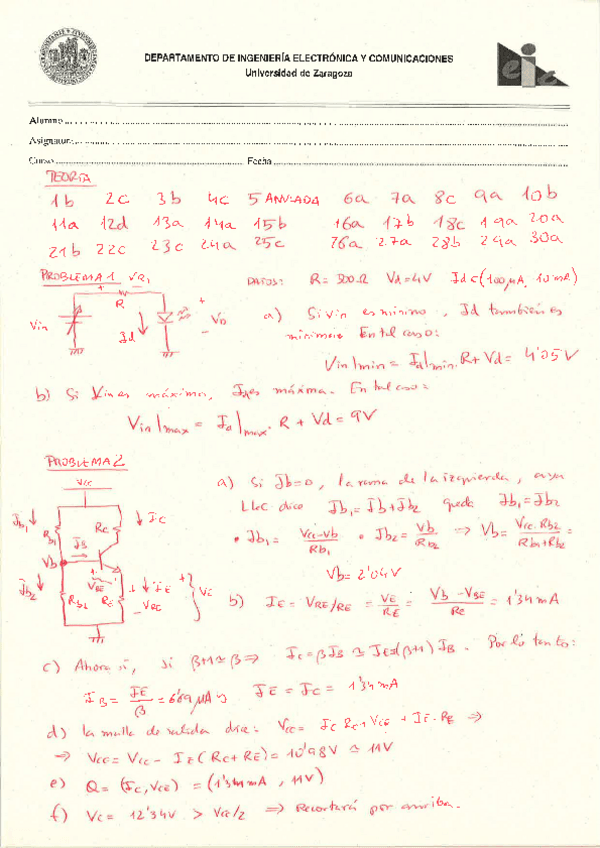 DEPARTAMENTO DE INGENIERÍA ELECTRÓNICA Y COMUNICACIONES
Universidad de Zaragoza
eic
Alumno
Asignatura
Curso Fecha
TEORÍA
1b 2c 3b 4c 5 ANULADA 6a 7a 8c 9a 10b
11a 12d 13a 14a 15b 16a 17b 18c 19a 20a
21b 22c 23c 24a 25c 26a 27a 28b 29a 30a
PROBLEMA 1 VR1
DATOS: R = 500Ω Vd=4V Id∈(100μA, 10mA)
+ - R + Vin Id VD -
a) Si Vin es mínimo, Id también es
mínima. En tal caso:
Vin|min = Id|min. R + Vd = 4'05V
b) Si Vin es máximo, es máxima. En tal caso:
Vin|max = Id|max. R + Vd = 9V
PROBLEMA 2
Vcc
Ib1 RB1 RC IC
Vb IB
Ib2 RB2 VBE RE IE VRE VE
a) Si Ib=0, la rama de la izquierda, cuya
LKC dice Ib1 = Ib+Ib2 queda Ib1=Ib2
• Ib1 = Vcc-Vb / Rb1 • Ib2 = Vb / Rb2 ⇒ Vb = Vcc·Rb2 / Rb1+Rb2 =
Vb=2'04V
b) IE = VRE/RE = VE / RE = Vb - VBE / RE = 1'34mA
c) Ahora sí, si β+1≅β ⇒ Ic=βIB ≅ IE=(β+1)IB. Por lo tanto:
IB = IE / β = 6'69μA y IE = IC = 1'34mA
d) la malla de salida dice: Vcc = IC RC+VCE + IE·RE ⇒
⇒ VCE = Vcc - IE(RC+RE) = 10'98V ≅ 11V
e) Q = (IC, VCE) = (1'34mA, 11V)
f) Vc = 12'34V > Vcc/2 ⇒ Recortará por arriba.